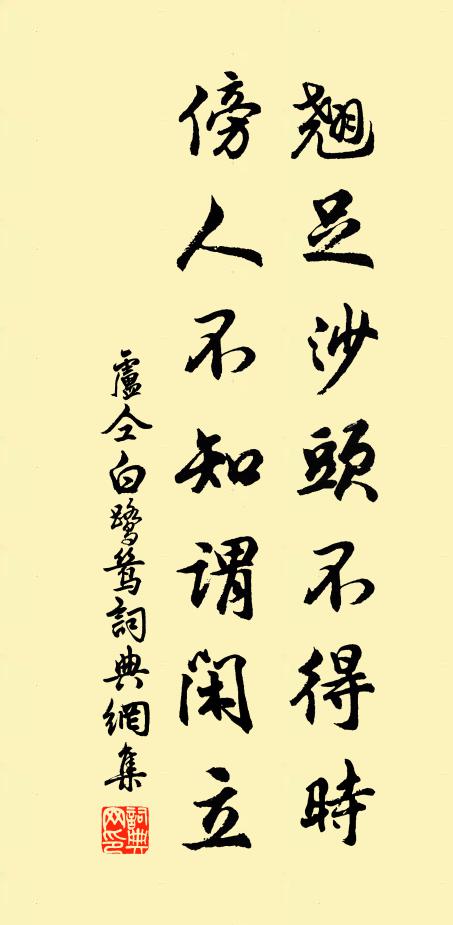 翹足沙頭不得時
傍人不知謂閑立
盧仝白鷺鷥詞典網集
詞典网印